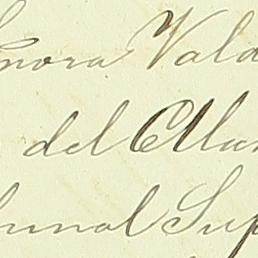 nora Vald
del Ella
bunal Sup